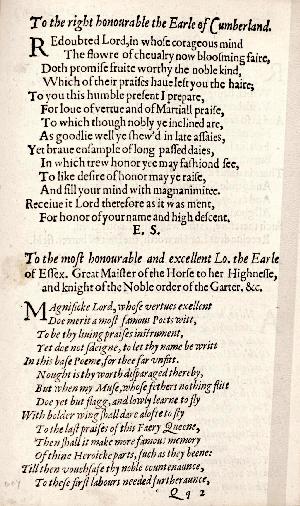 To the right honourable the Earle of Cumberland.
REdoubted Lord, in whose corageous mind
The flowre of cheualry now bloosming faire,
Doth promise fruite worthy the noble kind,
Which of their praises haue left you the haire;
To you this humble present I prepare,
For loue of vertue and of Martiall praise,
To which though nobly ye inclined are,
As goodlie well ye shew'd in late assaies,
Yet braue ensample of long passed daies,
In which trew honor yee may fashiond see,
To like desire of honor may ye raise,
And fill your mind with magnanimitee.
Receiue it Lord therefore as it was ment,
For honor of your name and high descent.
E. S.
To the most honourable and excellent Lo. the Earle
of Essex. Great Maister of the Horse to her Highnesse,
and knight of the Noble order of the Garter, &c.
MAgnificke Lord, whose vertues excellent
Doe merit a most famous Poets witt,
To be thy liuing praises instrument,
Yet doe not sdeigne, to let thy name be writt
In this base Poeme, for thee far vnfitt.
Nought is thy worth disparaged thereby,
But when my Muse, whose fethers nothing flitt
Doe yet but flagg, and lowly learne to fly
With bolder wing shall dare alofte to sty
To the last praises of this Faery Queene,
Then shall it make more famous memory
Of thine Heroicke parts, such as they beene:
Till then vouchsafe thy noble countenaunce,
To these first labours needed furtheraunce,
Qq 2